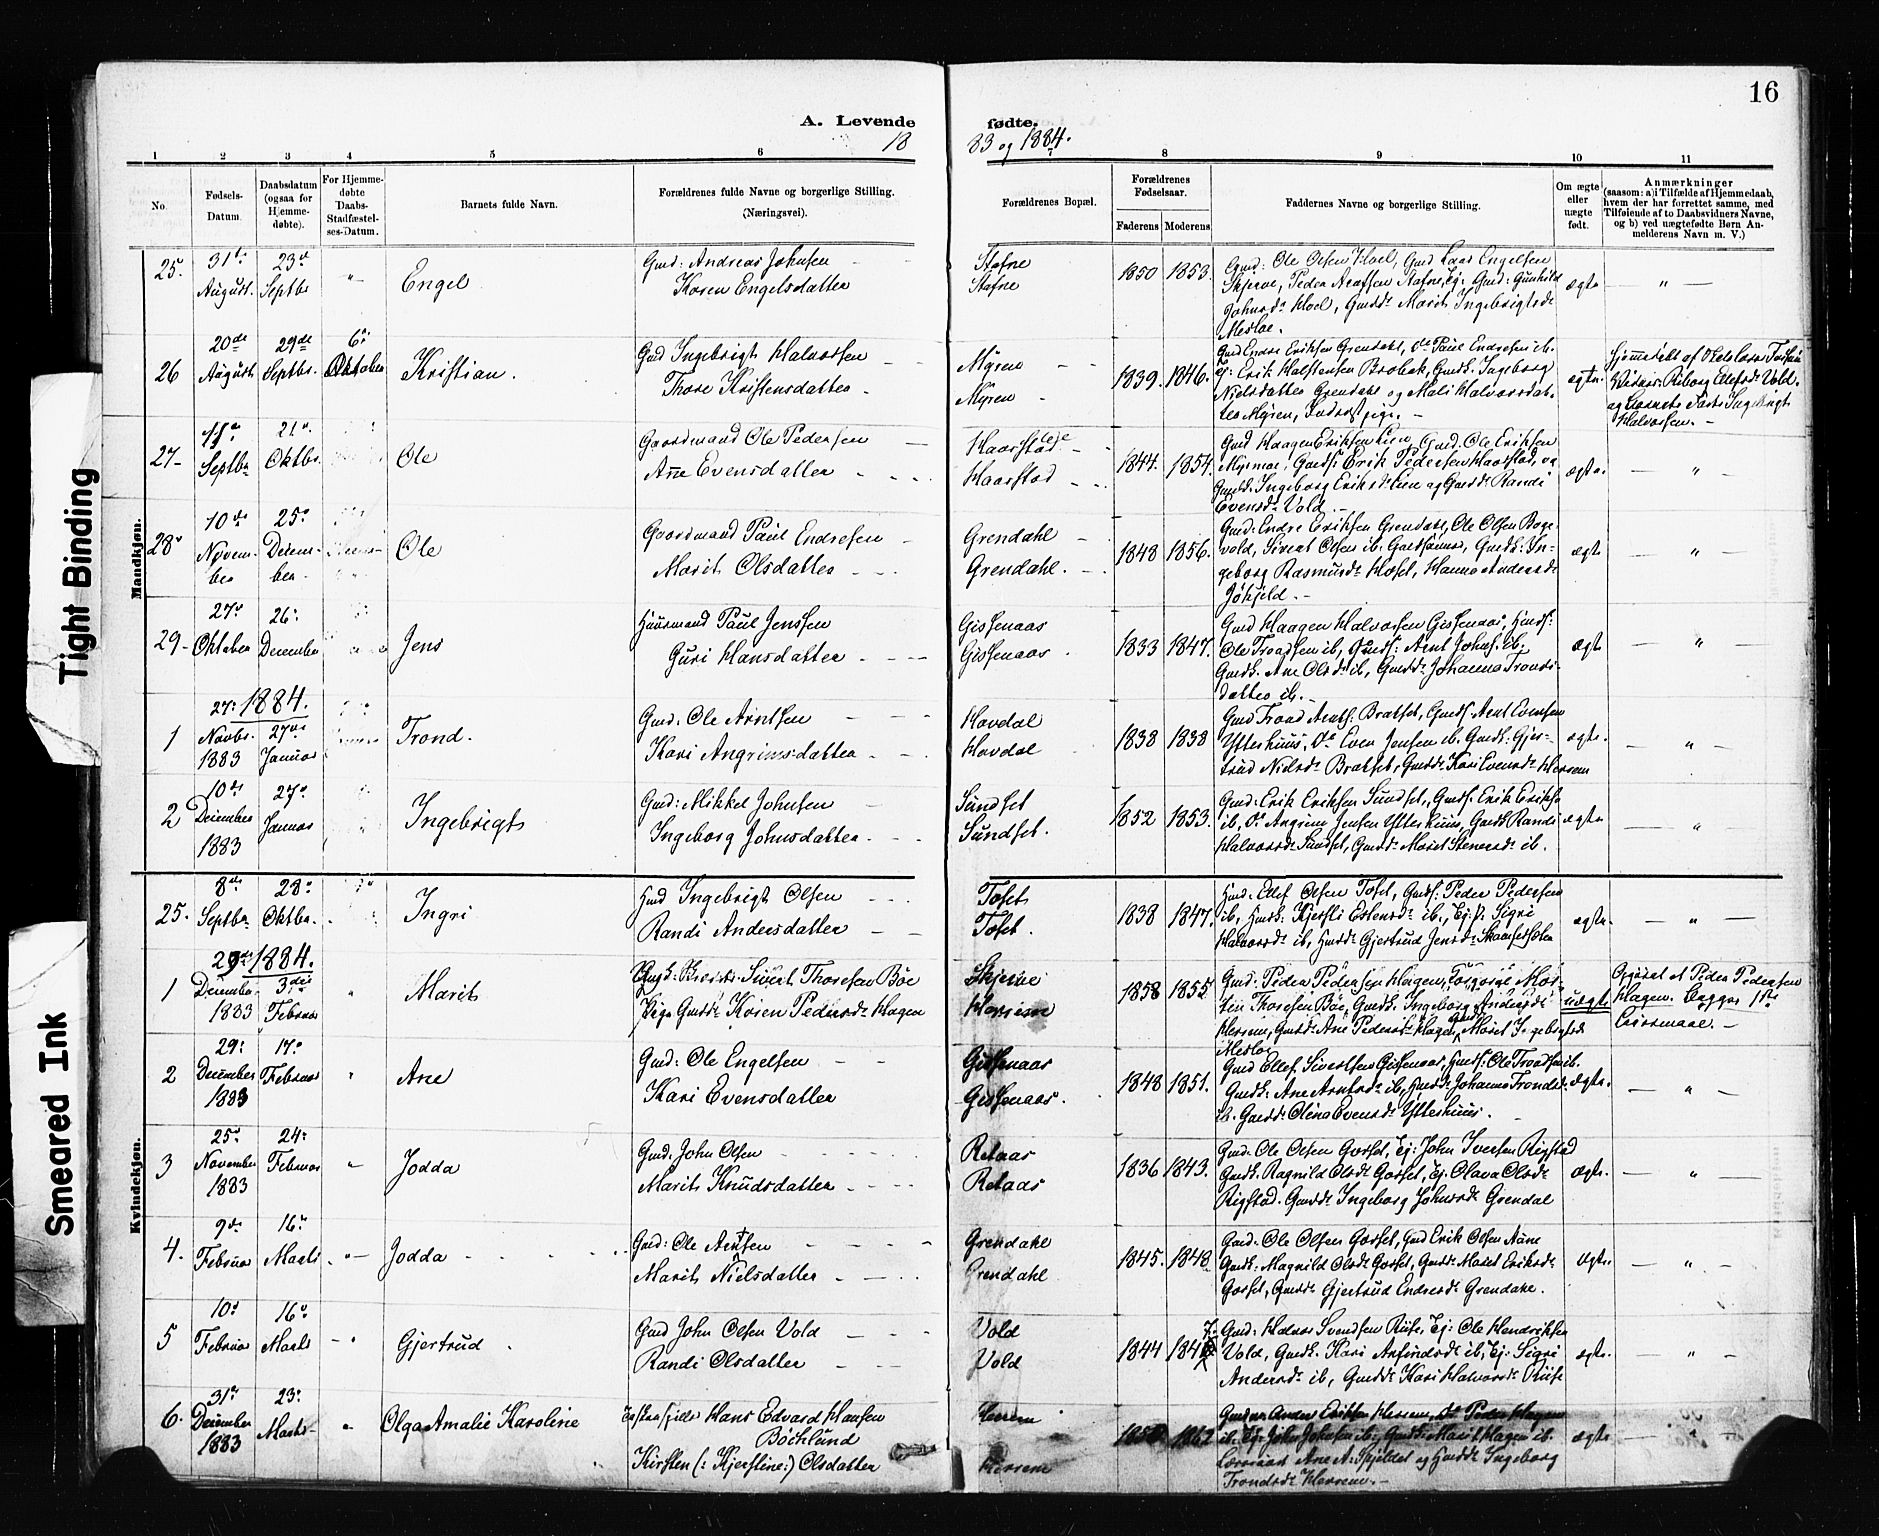 16
A. Levende fødte.
1883 og 1884.
1 2 3 4 5 6 7 8 9 10 11
No.
Fødsels-Datum.
Daabsdatum (ogsaa for Hjemme-døbte).
For Hjemme-døbte Daabs-Stadfæstel-ses-Datum.
Barnets fulde Navn.
Forældrenes fulde Navne og borgerlige Stilling. (Næringsvei).
Forældrenes Bopæl.
Forældrenes Fødselsaar.
Faderens Moderens
Faddernes Navne og borgerlige Stilling.
Om ægte eller uægte født.
Anmærkninger
(saasom: a) i Tilfælde af Hjemmedaab, hvem der har forrettet samme, med Tilføiende af to Daabsvidners Navne, og b) ved uægtefødte Børn An-melderens Navn m. V.)
Mandkjøn.
25. 31te August. 23de Septbr " Engel
Gmd: Andreas Johnsen
Karen Engelsdatter
Stafne
Stafne
1850 1853.
Gmd: Ole Olsen Hoel, Gmd Lars Engelsen
ægte "
26 20de August 29de Septbr. 6te Oktober Kristian.
Gmd Ingebrigt Halvorsen
Thore Kristensdatter
Myren
Myren
1839. 1846.
Gmd Endre Eriksen Grendahl, Do Paul Endresen ib.
Ej: Erik Halstensen Brobak, Gmdk. Ingeborg
Nielsdatter Grendahl og Mali Halvorsdat-
ter Myren,
ægte.
Halvorsen.
27 Septbr 21de Oktbr. Ole
Gaardmand Ole Pedersen
Ane Evensdatter
Haarstad eje
Haarstad
1844. 1854.
Gmd Haagen Eriksen Lien, Gmd. Ole Eriksen
Erik Pedersen Haarstad,
Evensd. Vold.
ægte. "
28 10de Novem-ber 25de Decem-ber. Ole
Gaardmand Paul Endresen
Marit Olsdatter
Grendahl
Grendahl.
1848 1856.
Gmd: Endre Eriksen Grendahl, Ole Olsen Boge-
vold, Sivert Olsen ib. Gmdk: In-
geborg Rasmusd. Hoset, Hanna Andersd.
Jøhjeld.
ægte "
29 27de Oktober 26de December Jens
Huusmand Paul Jenssen
Guri Hansdatter
Gissenaas
Gissenaas
1833 1847.
Gmd Haagen Halvorsen Gissenaas,
Ole Troedsen ib, Arnt Johns. ib.
Gmdk. Ane Olsd. ib, Gmdd. Johanna Tronds-
datter ib.
ægte "
1884.
1 27: Novbr. 1883 27de Januar Trond.
Gmd: Ole Arntsen
Kari Angrimsdatter
Hovdal
Hovdal
1838 1838
Gmd Trond Arnts. Bratset, Gmds. Arnt Evensen
Ytterhuus, Do Even Jensen ib. Gmdk: Gjer-
trud Nielsd. Bratset, Gmdd. Kari Evensd. Herrem
ægte. "
2 10de December 1883 27de Januar Ingebrigt
Gmd: Mikkel Johnsen
Ingeborg Johnsdatter
Sundset
Sundset.
1852 1853.
Gmd: Erik Eriksen Sundset, Gmds. Erik Eriks.
ib, Do Angrim Jensen Ytterhuus, Gmdk Randi
Halvorsd. Sundset, Gmdd. Marit Stenersd. ib.
ægte "
Kvindekjøn.
25. 8de Septbr 28de Oktbr. Ingri
Hmd Ingebrigt Olsen
Randi Andersdatter
Toset
Toset.
1838 1847.
Hmd. Ellef Olsen Toset, Gmds. Peder Pedersen
ib, Hmdk. Kjersti Estensd. ib., Ej: P. Sigri
Halvorsd. ib, Hmdd. Gjertrud Jensd.
ægte. "
1884.
1 29de December 1883 3die Februar " Marit
Sivert Thoresen Bøe
Pige Gmdd. Karen Pedersd. Hagen
Skjerve
Herrem
1858 1855
Gmd. Peder Pedersen Hagen,
Thoresen Bøe, Gmdk. Ingeborg Andersd.
Herrem, Gmdd. Ane Pedersd. Hagen, Marit Ingebrigtsd.
uægte
Opgivet af Peder Pedersen
Hagen. Begges 1ste
Leiermaal.
2 29: December 1883 17de Februar " Ane
Gmd: Ole Engelsen
Kari Evensdatter
Gissenaas
Gissenaas.
1848 1851.
Gmd Ellef Sivertsen Gissenaas, Hmds. Ole Troedsen ib.
Gmdk: Ane Arntsd. ib, Hmdd. Johanna Trondsd.
ib. Gmdd. Olina Evensd. Ytterhuus.
ægte. "
3 25de November 1883 24: Februar " Jodda
Gmd. John Olsen
Marit Knudsdatter
Retaas
Retaas
1836 1843.
Gmd. Ole Olsen Gorset, Ej: John Iversen Rigstad
Gmdk. Ragnild Olsd. Gorset, Ej. Olava Olsd.
Rigstad. Gmdd. Ingeborg Johnsd. Grendal
ægte. "
4. 9de Februar 16de Marts " Jodda
Gmd: Ole Arntsen
Marit Nielsdatter
Grendahl
Grendahl
1845. 1848
Gmd. Ole Olsen Gorset, Gmd Erik Olsen Aune
Gmdk. Magnild Olsd. Gorset, Gmdd. Marit Eriksd.
Gorset, Gmdd. Gjertrud Endresd. Grendahl.
ægte. "
5 10de Februar 16de Marts " Gjertrud
Gmd John Olsen Vold
Randi Olsdatter
Vold
Vold
1844 1847
Gmd: Halvor Svendsen Riise, Ej: Ole Hendriksen
Vold, Gmdk. Kari Arfindsd. ib, Ej: Sigri
Andersd. ib, Gmdd. Kari Halvorsd. Riise
ægte. "
6. 31te December 1883 23: Marts " Olga Amalie Karoline
Hans Edvard Hansen
Böcklund
Kirsten (: Kjerstine:) Olsdatter
Herrem
Herrem
1862
Gmd Anders Eriksen Herrem, Do Peder Hagen
ib. Ej: John Johnsen ib. Gmdk: Marit Hagen ib.
Ane A. Skjeldet og Hmdd. Ingeborg
Trondsd. Herrem.
ægte
Tight Binding
Smeared Ink